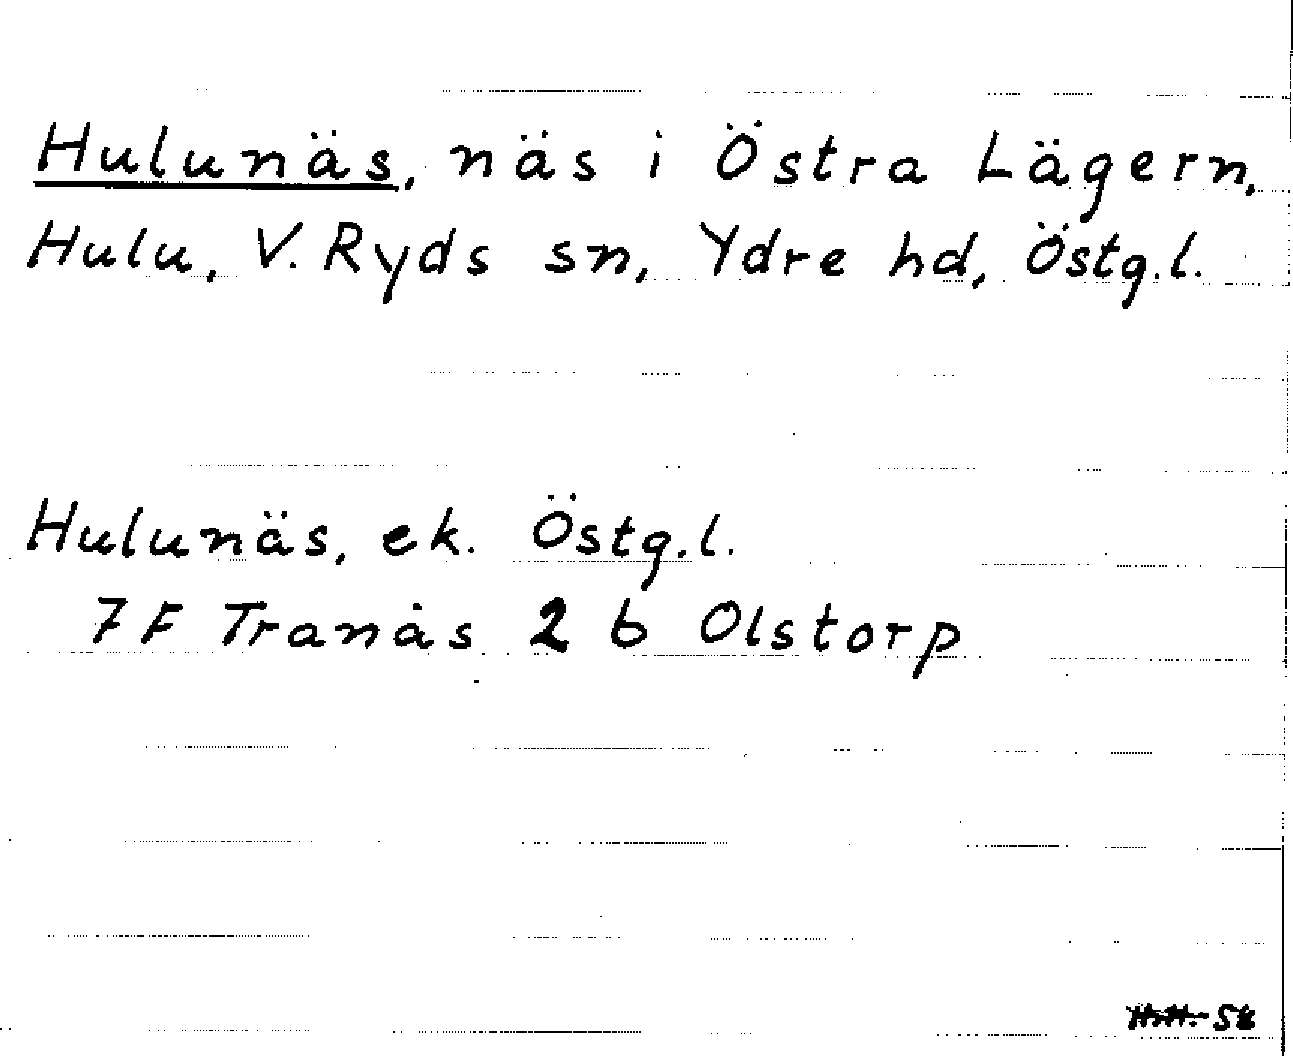 Hulunäs, näs i Östra Lägern,
Hulu, V. Ryds sn, Ydre hd, Östg.l.
Hulunäs, ek. Östg.l.
7 F Tranås 2 b Olstorp